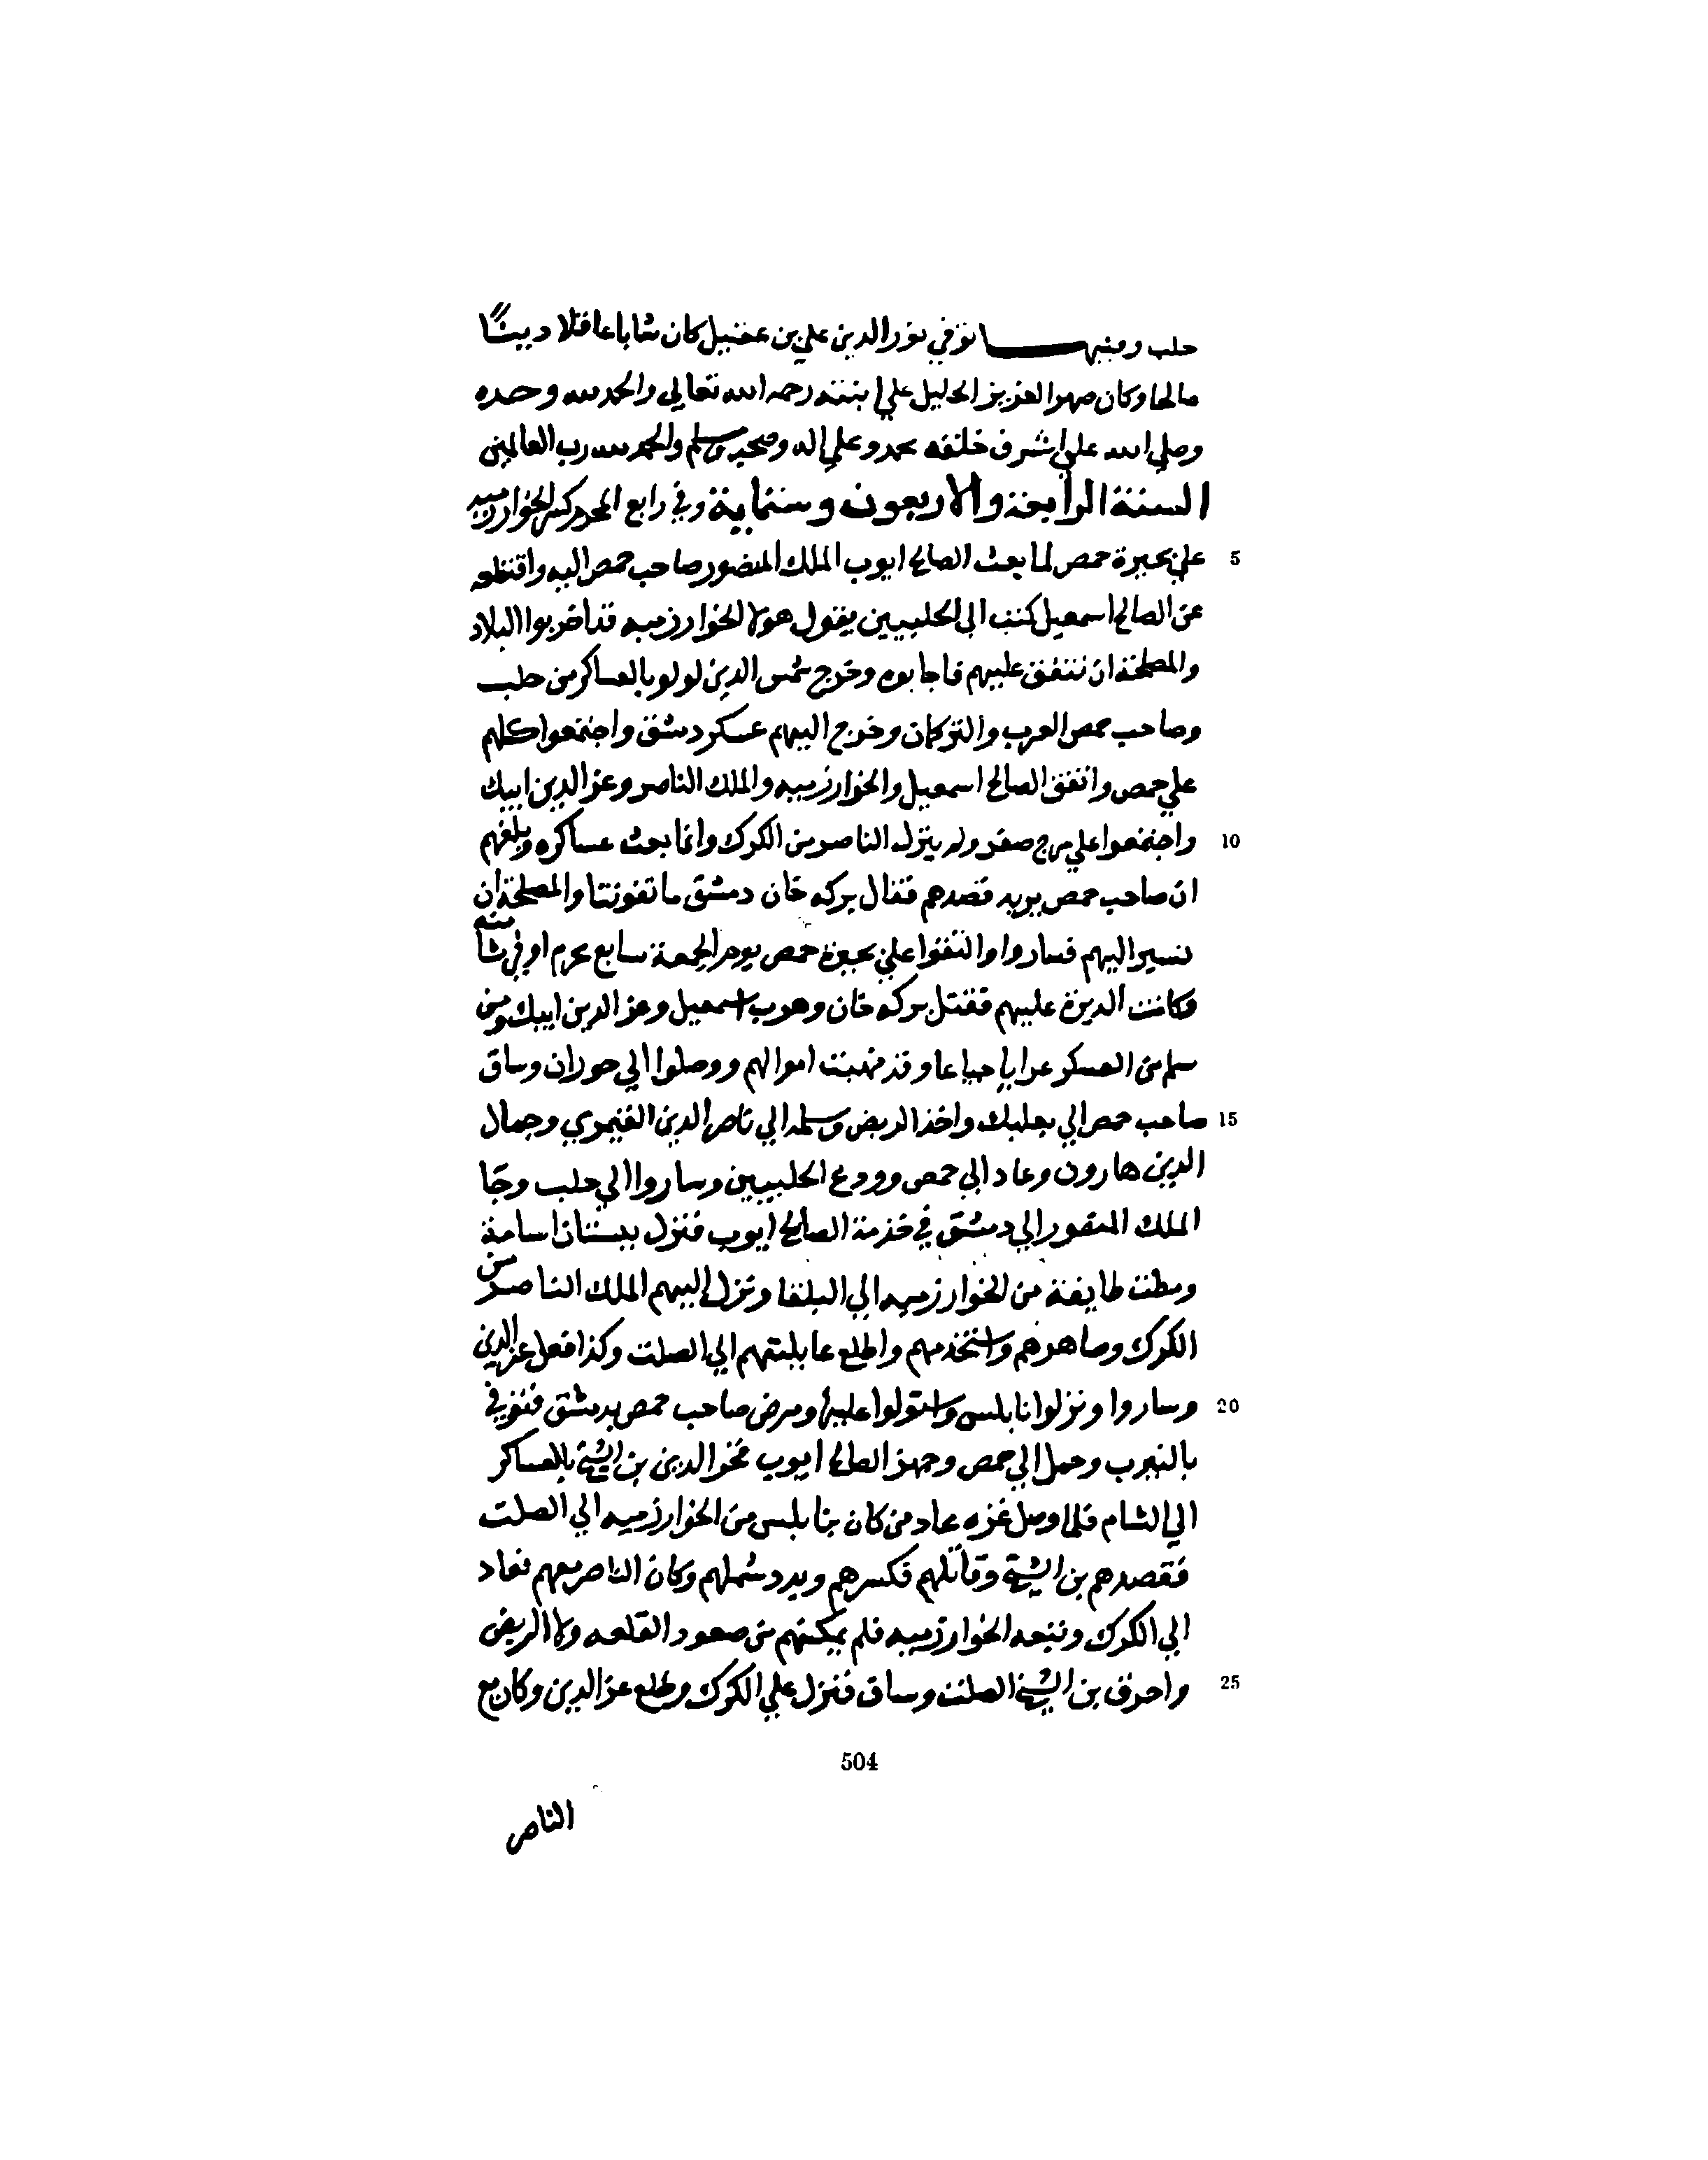 حلب ومنها توفي نور الدين علي بن عقيل كان شابا عاقلا دينًا
صالحا وكان صهر العزيز الخليل علي ابنته رحمه الله تعالي والحمد لله وحده
وصلي الله علي اشرف خلقه محمد وعلي اله وصحبه وسلم والحمد لله رب العالمين
السنة الرابعة والاربعون وستماية وفي رابع المحرم كسر الخوارزميه
5 علي بحيرة حمص لما بعث الصالح ايوب الملك المنصور صاحب حمص اليه واقتطعه
عن الصالح اسمعيل كتب الي الحلبيين يقول هولا الخوارزميه قد اخربوا البلاد
والمصلحة ان نتفق عليهم فاجابوه وخرج شمس الدين لولو بالعساكر من حلب
وصاحب حمص العرب والتركمان وخرج اليهم عسكر دمشق واجتمعوا كلهم
علي حمص واتفق الصالح اسمعيل والخوارزميه والملك الناصر وعز الدين ايبك
10 واجتمعوا علي مرج صفر ولم ينزل الناصر من الكرك وانما بعث عساكره وبلغهم
ان صاحب حمص يريد قصدهم فقال بركه خان دمشق ما تفوتنا والمصلحة ان
نسير اليهم فساروا والتقوا علي بحيرة حمص يوم الجمعة سابع محرم او في ثامنه
فكانت الديرة عليهم فقتل بركه خان وهرب اسمعيل وعز الدين ايبك ومن
سلم من العسكر عرايا جياعا وقد نهبت اموالهم ووصلوا الي حوران وساق
15 صاحب حمص الي بعلبك واخذ الربض وسلمه الي ناصر الدين القيمري وجمال
الدين هارون وعاد الي حمص وودع الحلبيين وساروا الي حلب وجا
الملك المنصور الي دمشق في خدمة الصالح ايوب فنزل ببستان اسامة
ومضت طايفة من الخوارزميه الي البلقا ونزل اليهم الملك الناصر من
الكرك وصاهرهم واستخدمهم واطلع عايلتهم الي الصلت وكذا فعل عز الدين
20 وساروا ونزلوا نابلس واستولوا عليها ومرض صاحب حمص بدمشق فتوفي
بالنيرب وحمل الي حمص وجهز الصالح ايوب فخر الدين بن الشيخ بالعساكر
الي الشام فلما وصل غزه عاد من كان بنابلس من الخوارزميه الي الصلت
فقصدهم بن الشيخ وقاتلهم فكسرهم وبدد شملهم وكان الناصر معهم فعاد
الي الكرك وتبعه الخوارزميه فلم يمكنهم من صعود القلعه ولا الربض
25 واحرق بن الشيخ الصلت وساق فنزل علي الكرك وطلع عز الدين وكان مع
504
الناصر